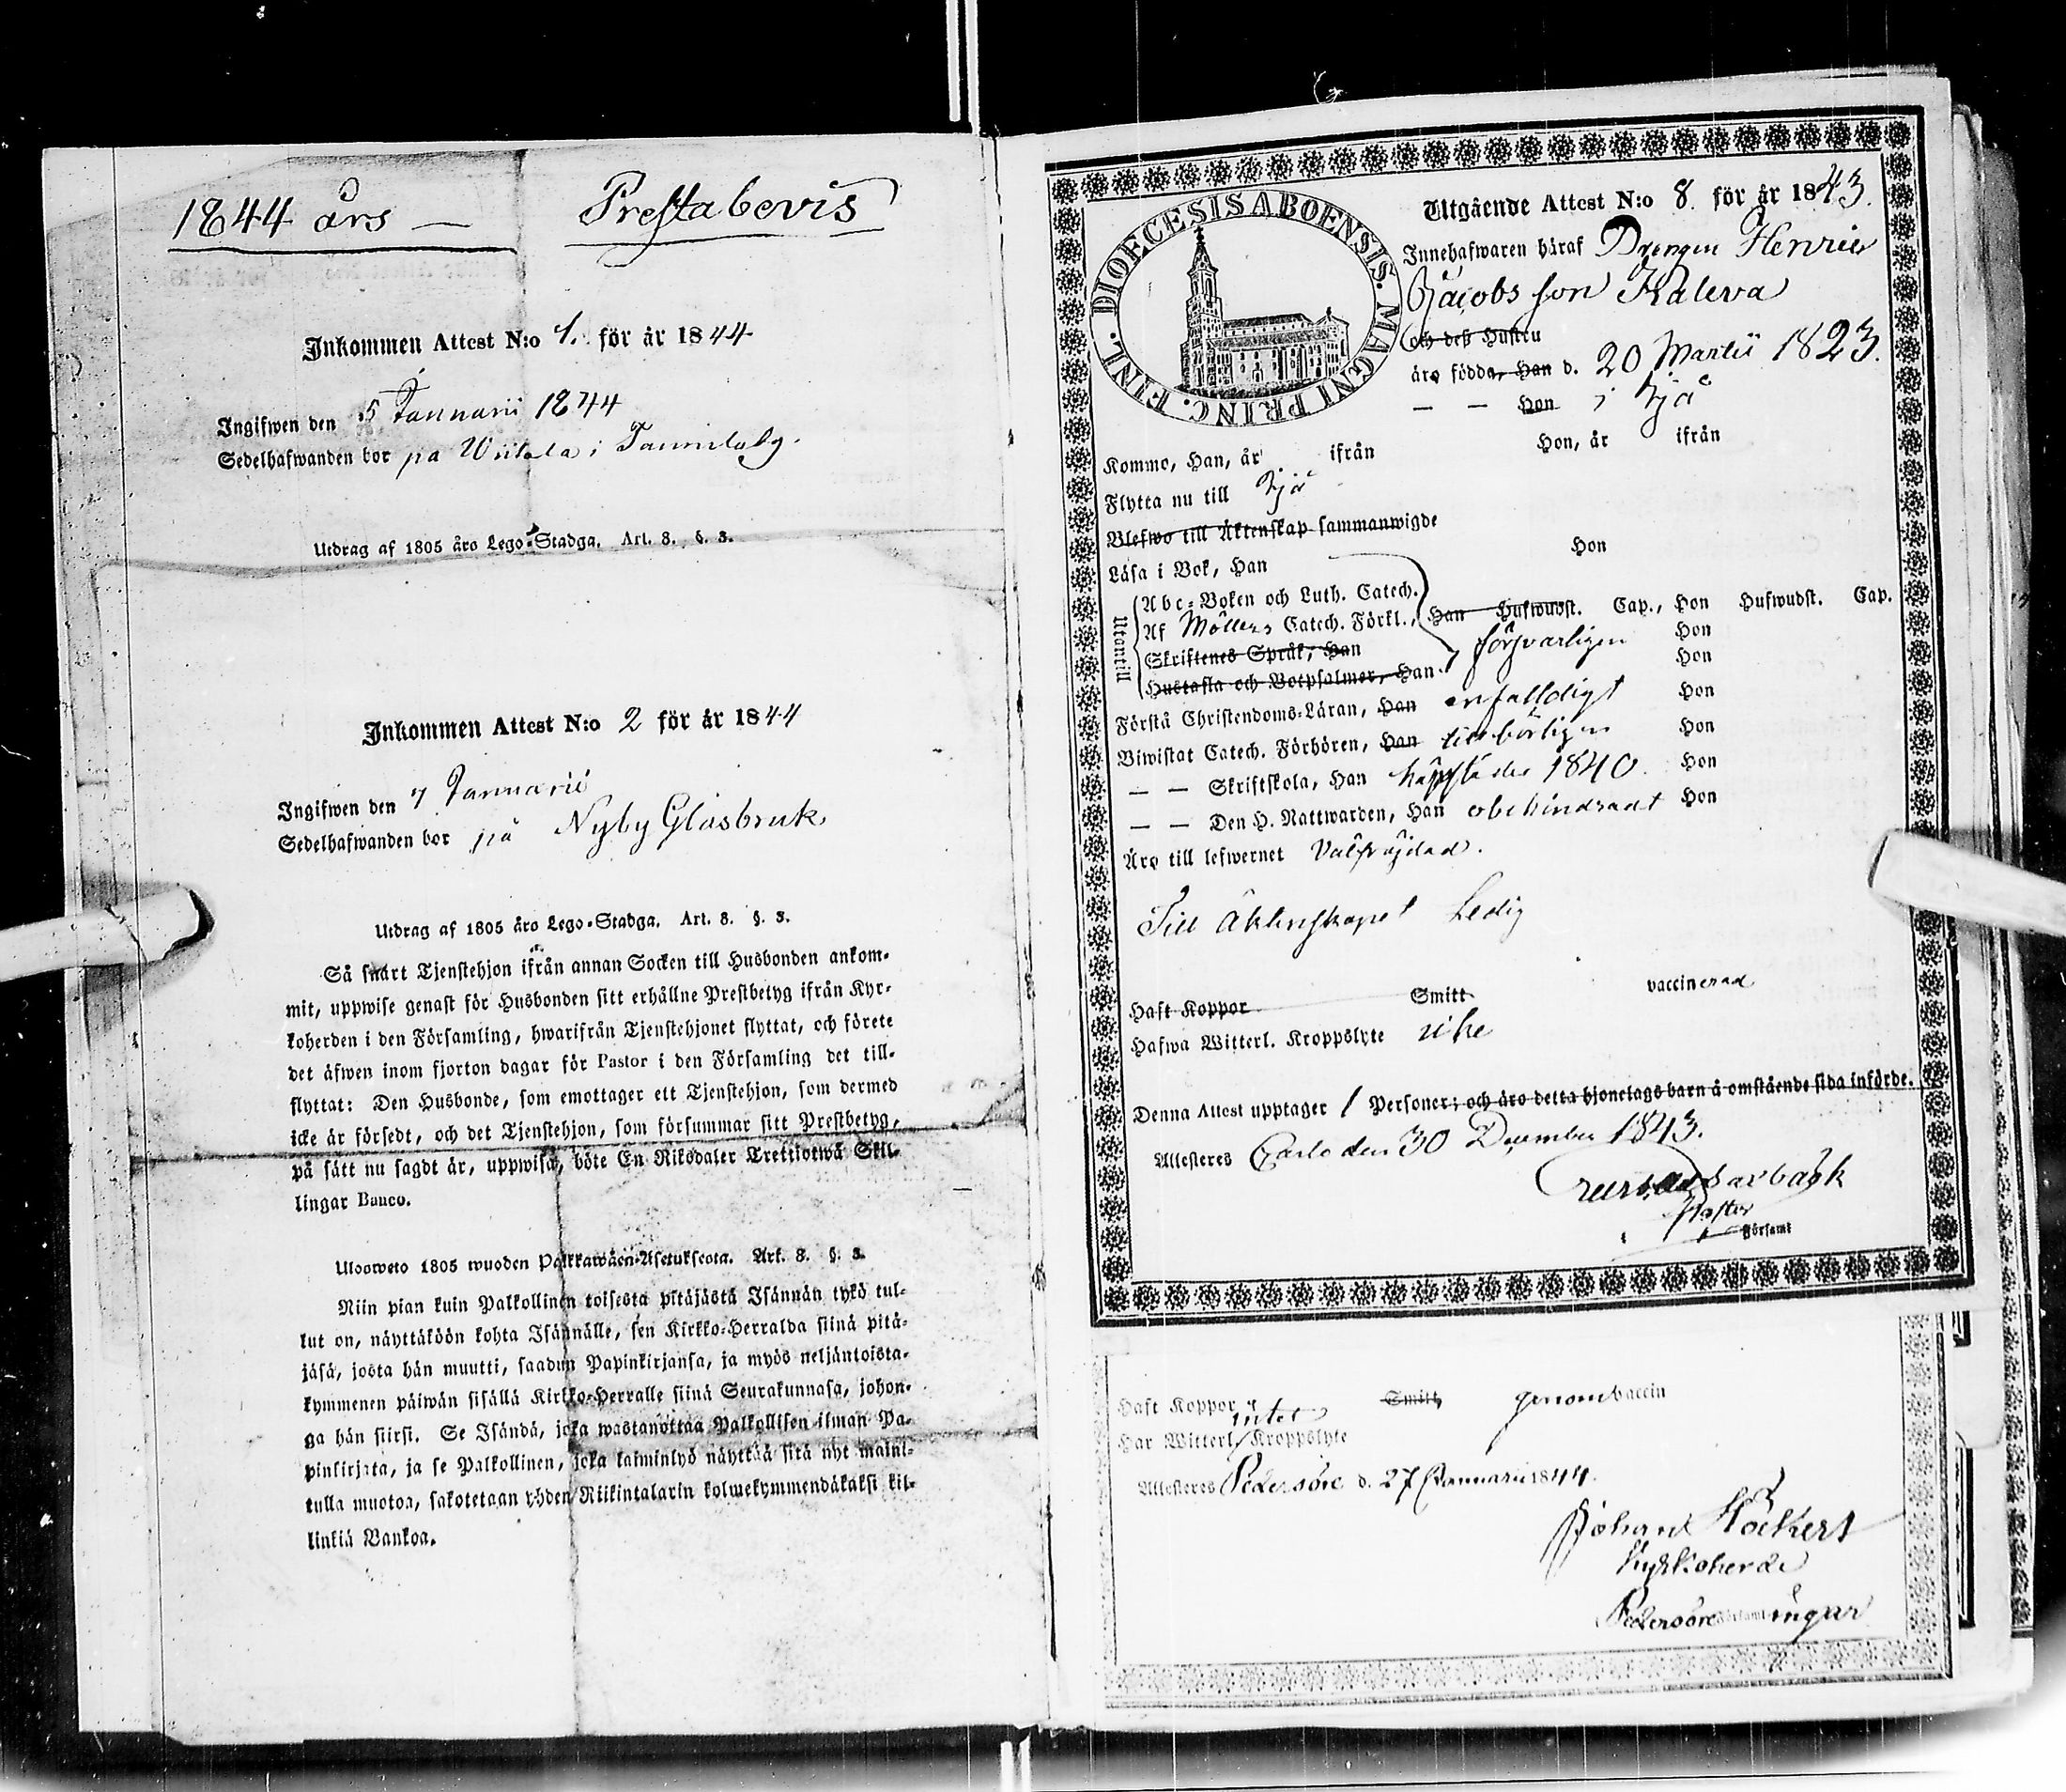 1844 års — Prestabevis
Inkommen Attest N:o 1. för år 1844
Ingifwen den 5 Januarii 1844
Sedelhafwanden bor på Wiitala i
Utdrag af 1805 års Lego-Stadga. Art. 8. §. 3.
Inkommen Attest N:o 2 för år 1844
Ingifwen den 7 Januarii
Sedelhafwanden bor på Nyby Glasbruk
Utdrag af 1805 års Lego-Stadga. Art. 8. §. 3.
Så snart Tjenstehjon ifrån annan Socken till Husbonden ankom-
mit, uppwise genast för Husbonden sitt erhållne Prestbetyg ifrån Kyr-
koherden i den Församling, hwarifrån Tjenstehjonet flyttat, och förete
det äfwen inom fjorton dagar för Pastor i den Församling det till-
flyttat: Den Husbonde, som emottager ett Tjenstehjon, som dermed
icke är försedt, och det Tjenstehjon, som försummar sitt Prestbetyg,
på sätt nu sagdt är, uppwisa, böte En Riksdaler Trettiotwå Skil-
lingar Banco.
Ulosweto 1805 wuoden Palkkawäen-Asetuksesta. Art. 8. §. 3.
Niin pian kuin Palkollinen toisesta pitäjästä Isännän tykö tul-
lut on, näyttäköön kohta Isännälle, sen Kirkko-Herralda siinä pitä-
jäsä, josta hän muutti, saadun Papinkirjansa, ja myös neljäntoista-
kymmenen päiwän sisällä Kirkko-Herralle siinä Seurakunnasa, johon-
ga hän siirsi. Se Isändä, joka wastanottaa Palkollisen ilman Pa-
pinkirjata, ja se Palkollinen, joka laiminlyö näyttää sitä nyt maini-
tulla muotoa, sakotetaan yhden Riikintalarin kolmekymmendäkaksi kil-
linkiä Bankoa.
DIOECESIS ABOENSIS. MAGNI PRINC. FINL.
Utgående Attest N:o 8 för år 1843.
Innehafwaren häraf Drengen Henric
Jacobs son Kaleva
och deß Hustru
äro födda, Han d. 20 Martii 1823.
— — Hon i
Kommo, Han, år ifrån Hon, år ifrån
Flytta nu till
Blefwo till Äktenskap sammanwigde
Läsa i Bok, Han Hon
Utantill
Abc-Boken och Luth. Catech.
Af Möllers Catech. Förkl., Han Hufwudst. Cap., Hon Hufwudst. Cap.
Skriftenes Språk, Han försvarligen Hon
Hustafla och Botpsalmer, Han Hon
Förstå Christendoms-Läran, Han enfalldigt Hon
Biwistat Catech. Förhören, Han tillbörligen Hon
— — Skriftskola, Han 1840. Hon
— — Den H. Nattwarden, Han obehindradt Hon
Äro till lefwernet Välfrejdad.
Till äktenskapet Ledig
Haft Koppor Smitt vaccinerad
Hafwa Witterl. Kroppslyte icke
Denna Attest upptager 1 Personer; och äro detta hjonelags barn å omstående sida införde.
Attesteras Carlo den 30 December 1843.
Pastor
Församl
Haft Koppor Smitt genom vaccin
intet
Har Witterl. Kroppslyte
Attesteras Pedersöre d. 27 Januarii 1844.
Johan Höckert
Kyrkoherde
Pedersöre Församlingar